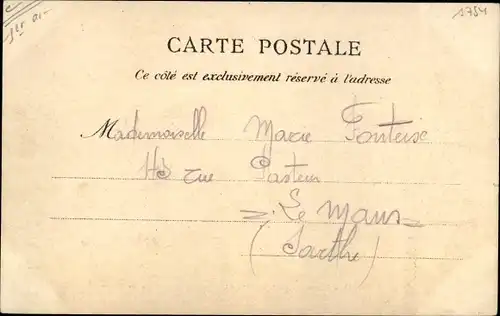 1754
CARTE POSTALE
Ce côté est exclusivement réservé à l'adresse
Mademoiselle Marie
rue Pasteur
Le Mans
(Sarthe)